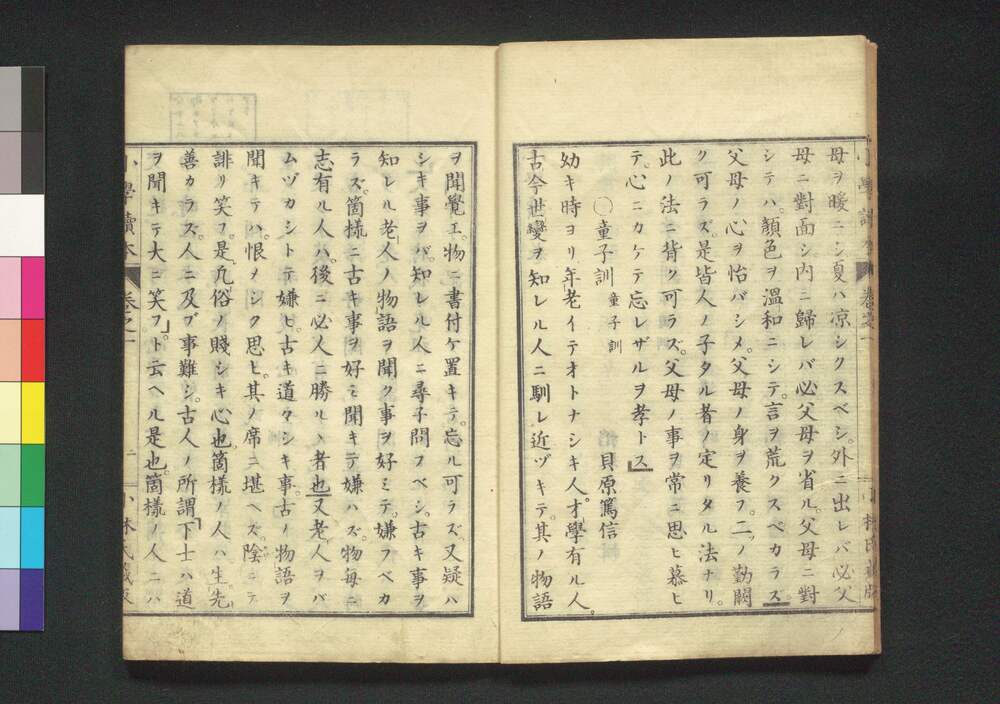 母ヲ暖ニシ夏ハ凉シクスベシ。外ニ出レバ必父
母ニ對面シ内ニ歸レバ必父母ヲ省ル。父母ニ對
シテハ。顏色ヲ溫和ニシテ。言ヲ荒クスベカラズ。
父母ノ心ヲ怡バシメ。父母ノ身ヲ養フ。二ノ勤闕
ク可ラズ。是皆人ノ子タル者ノ定リタル法ナリ。
此ノ法ニ背ク可ラズ。父母ノ事ヲ常ニ思ヒ慕ヒ
テ。心ニカケテ忘レザルヲ孝トス」
〇童子訓 童子訓 貝原篤信
幼キ時ヨリ。年老イテオトナシキ人。才學有ル人。
古今世變ヲ知レル人ニ馴レ近ヅキテ。其ノ物語
ヲ聞覺エ。物ニ書付ケ置キテ。忘ル可ラズ。又疑ハ
シキ事ヲバ知レル人ニ尋子問フベシ。古キ事ヲ
知レル老人ノ物語ヲ聞ク事ヲ好ミテ。嫌フベカ
ラズ。箇樣ニ古キ事ヲ好ミ聞キテ嫌ハズ。物每ニ
志有ル人ハ。後ニ必人ニ勝ルヽ者也又老人ヲバ
ムヅカシトテ嫌ヒ。古キ道々シキ事。古ノ物語ヲ
聞キテハ。恨メシク思ヒ。其ノ席ニ堪ヘズ。陰ニテ
誹リ笑フ。是凡俗ノ賤シキ心也。箇樣ノ人ハ。生先
善カラズ。人ニ及ブ事難シ。古人ノ所謂「下士ハ道
ヲ聞キテ大ニ笑フ」ト云ヘル是也。箇樣ノ人ニハ
小學讀本 卷之一 二 小林氏藏版